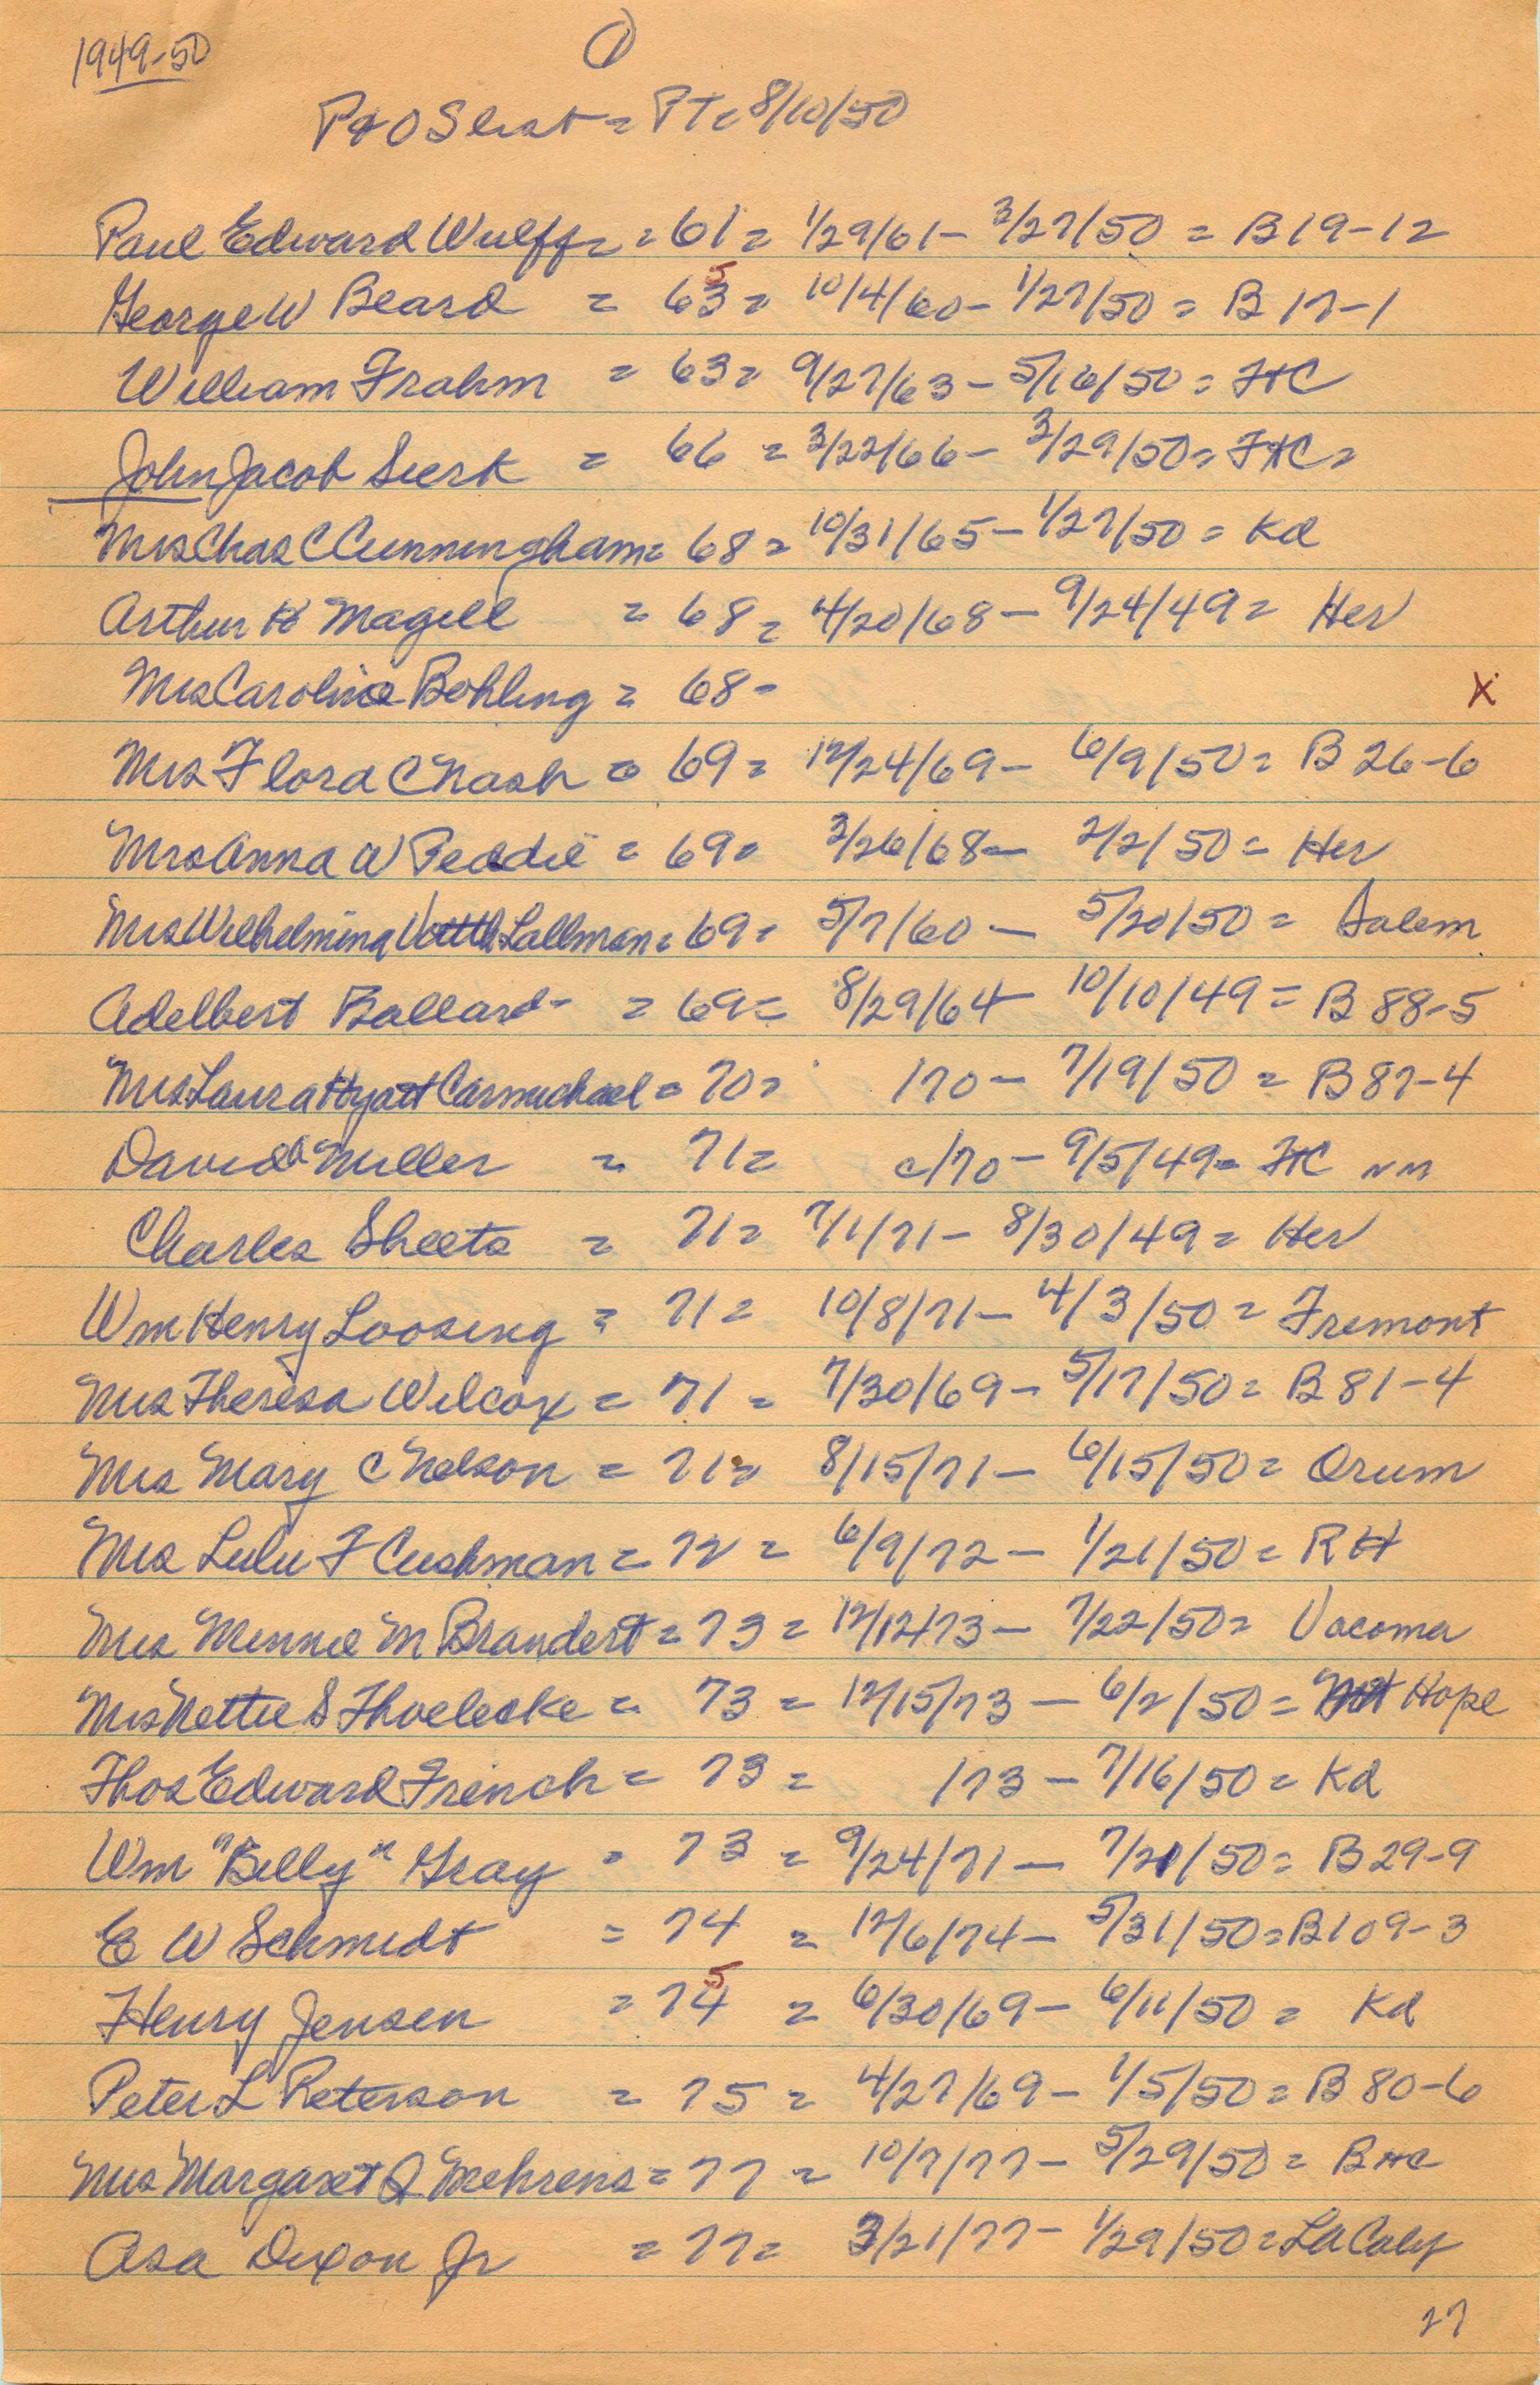 1949-50
1
P & O S List = PT = 8/10/50
Paul Edward Wulff = 61 = 1/29/61 - 3/27/50 = B 19-12
George W Beard = 63 5 = 10/4/60 - 1/27/50 = B 17-1
William Frahm = 63 = 9/27/63 - 5/16/50 = FtC
John Jacob Sierk = 66 = 3/22/66 - 3/29/50 = FtC =
Mrs Chas C Cunningham = 68 = 10/31/65 - 1/27/50 = Kd
Arthur H Magill = 68 = 4/20/68 - 9/24/49 = Her
Mrs Caroline Bohling = 68 - X
Mrs Flora C Nash = 69 = 12/24/69 - 6/9/50 = B 26-6
Mrs Anna W Peddie = 69 = 3/26/68 - 2/2/50 = Her
Mrs Wilhelmina Lallman = 69 = 5/7/60 - 5/20/50 = Salem
Adelbert Ballard - = 69 = 8/29/64 - 10/10/49 = B 88-5
Mrs Laura Hyatt Carmichael = 70 = /70 - 7/19/50 = B 87-4
David Miller = 71 = c/70 - 9/5/49 = FtC
Charles Sheets = 71 = 7/1/71 - 8/30/49 = Her
Wm Henry Loosing = 71 = 10/8/71 - 4/3/50 = Fremont
Mrs Theresa Wilcox = 71 = 7/30/69 - 5/17/50 = B 81-4
Mrs Mary C Nelson = 71 = 8/15/71 - 6/15/50 = Orum
Mrs Lulu F Cushman = 72 = 6/9/72 - 1/21/50 = RH
Mrs Minnie M Brandert = 73 = 12/12/73 - 7/22/50 = Vacoma
Mrs Nettie S Thoelecke = 73 = 12/15/73 - 6/2/50 = Mt Hope
Thos Edward French = 73 = /73 - 7/16/50 = Kd
Wm "Billy" Gray = 73 = 9/24/71 - 7/21/50 = B 29-9
E W Schmidt = 74 = 12/6/74 - 5/31/50 = B 109-3
Henry Jensen = 74 5 = 6/30/69 - 6/11/50 = Kd
Peter L Peterson = 75 = 4/27/69 - 1/5/50 = B 80-6
Mrs Margaret J Mehrens = 77 = 10/7/77 - 5/29/50 = BHC
Asa Dixon Jr = 77 = 3/21/77 - 1/29/50 = LA Calif
27